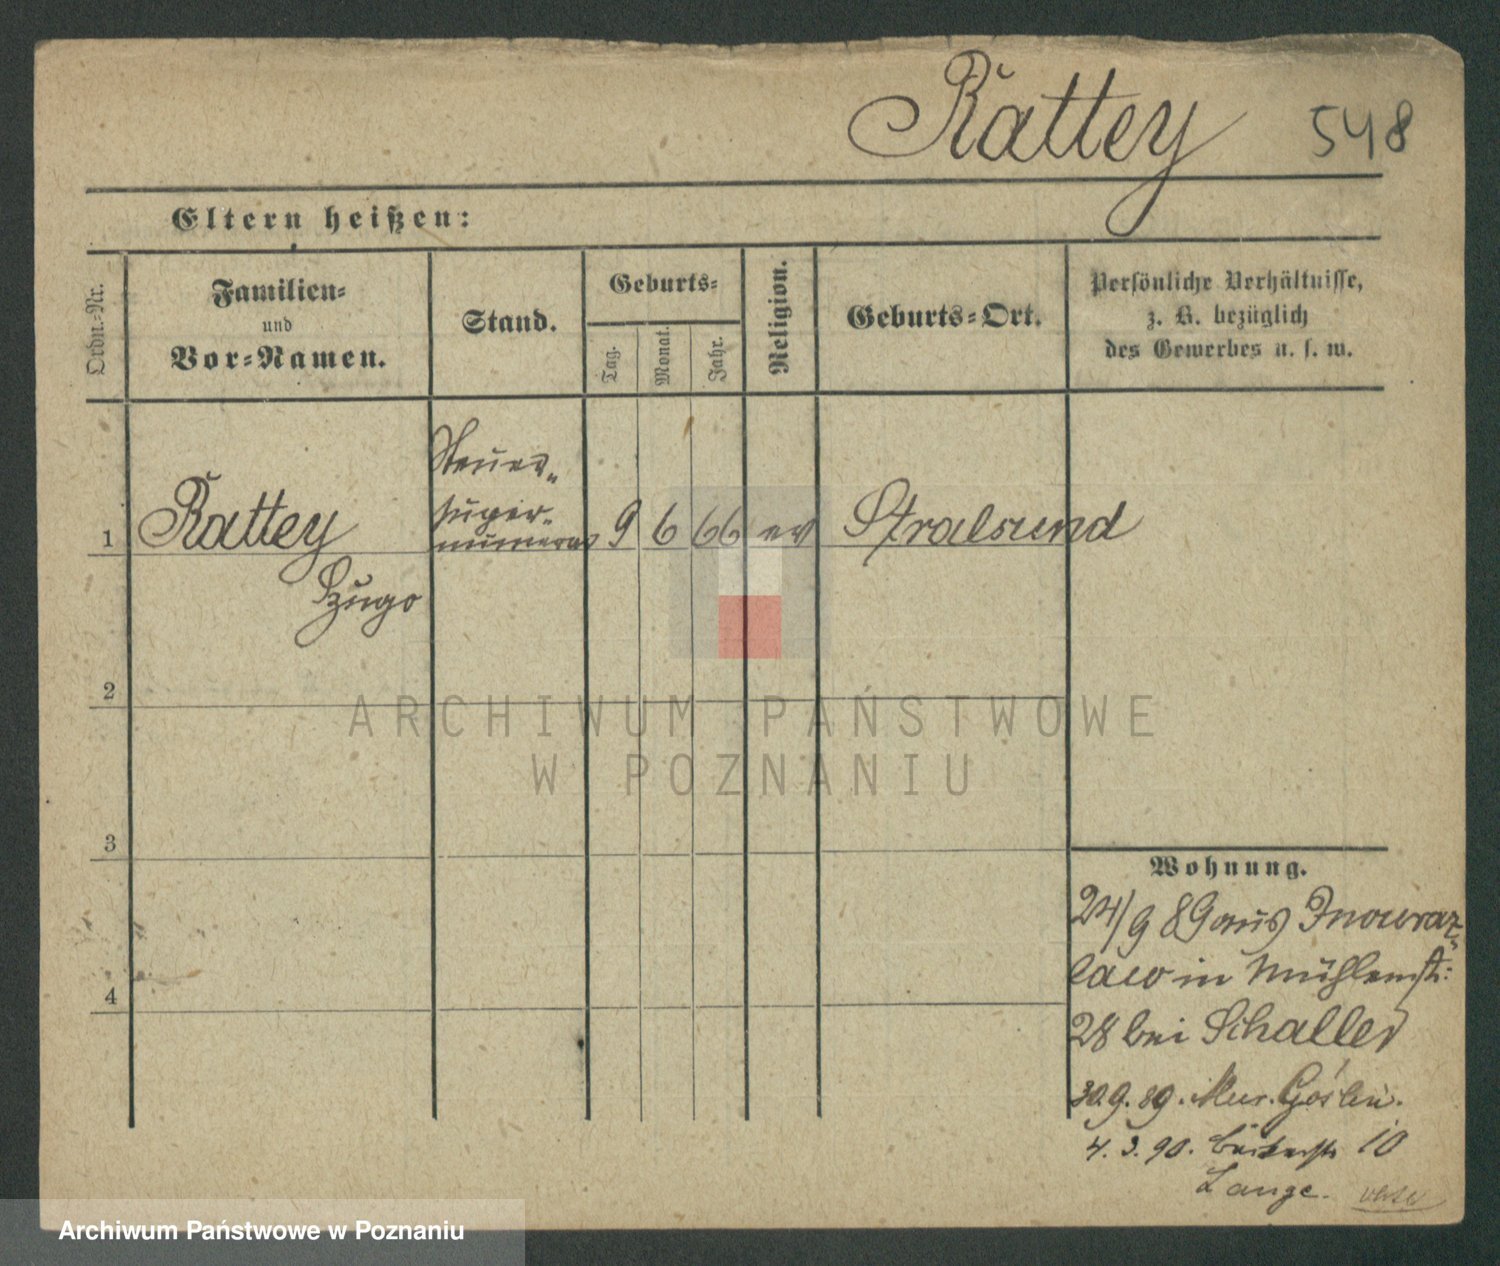 Rattey 548
Eltern heißen:
Ordn.-Nr.
Familien-
und
Vor-Namen.
Stand.
Geburts-
Tag.
Monat.
Jahr.
Religion.
Geburts-Ort.
Persönliche Verhältnisse,
z. B. bezüglich
des Gewerbes u. s. w.
1 Rattey
Hugo
Steuer-
super-
numerar
9 6 66 ev Stralsund
2
3
4
ARCHIWUM PAŃSTWOWE
W POZNANIU
Wohnung.
24/9 89 aus Inowraz-
law in Mühlenstr:
28 bei Schaller
30.9.89.
4. 3. 90. Bäckerstr 10
Lange.
Archiwum Państwowe w Poznaniu